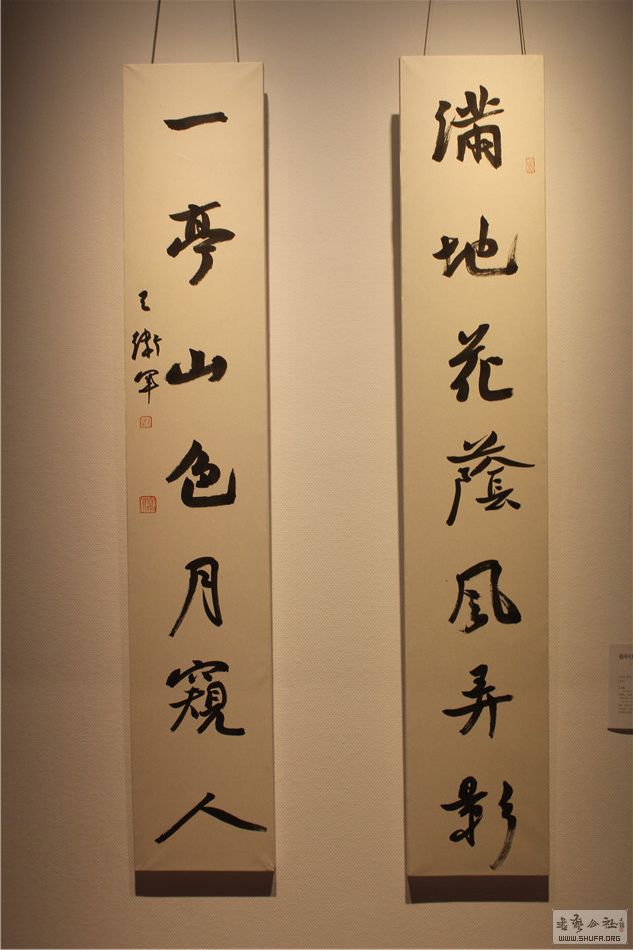 满地花蔭風弄影
一亭山色月窺人
王衛軍
書藝公社
WWW.SHUFA.ORG